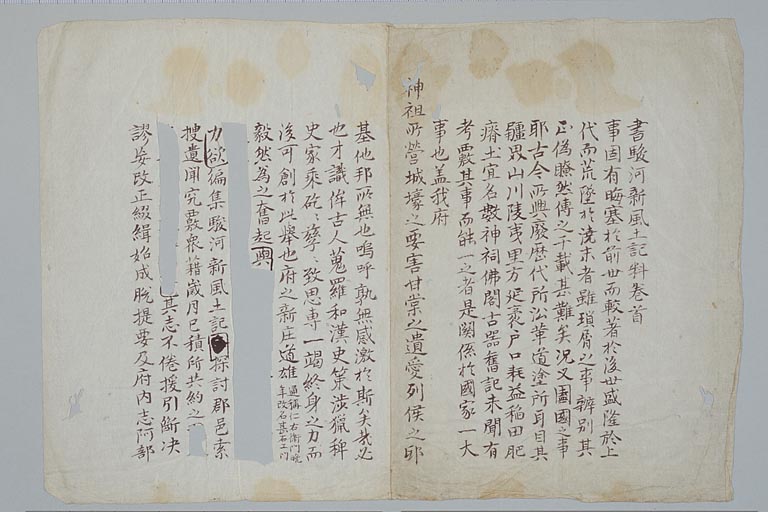 書駿河新風土記料卷首
事固有晦塞於前世而較著於後世盛隆於上
代而荒墜於澆末者雖瑣屑之事辨別其
正偽瞭然傳之千載甚難矣況又圖國之事
耶古今所興廢歷代所沿革道塗所自目其
疆界山川陵夷里方延袤戶口耗益稲田肥
瘠土宜名數神祠佛閣古器舊記未聞有
考覈其事而能一之者是關係於國家一大
事也蓋我府
神祖所營城壕之要害甘棠之遺愛列侯之邸
基他邦所無也嗚呼孰無感激於斯矣哉必
也才識侔古人蒐羅和漢史策涉獵稗
史家乘矻々孳々致思専一竭終身之力而
後可創於此舉也府之新庄道雄
通稱仁右衛門晚
年改名甚右エ門
毅然為之奮起興
力欲編集駿河新風土記探討郡邑索
搜遺聞究覈衆籍歲月已積所共約之
其志不倦援引斷决
謬妄改正綴緝始成脫提要及府内志阿部